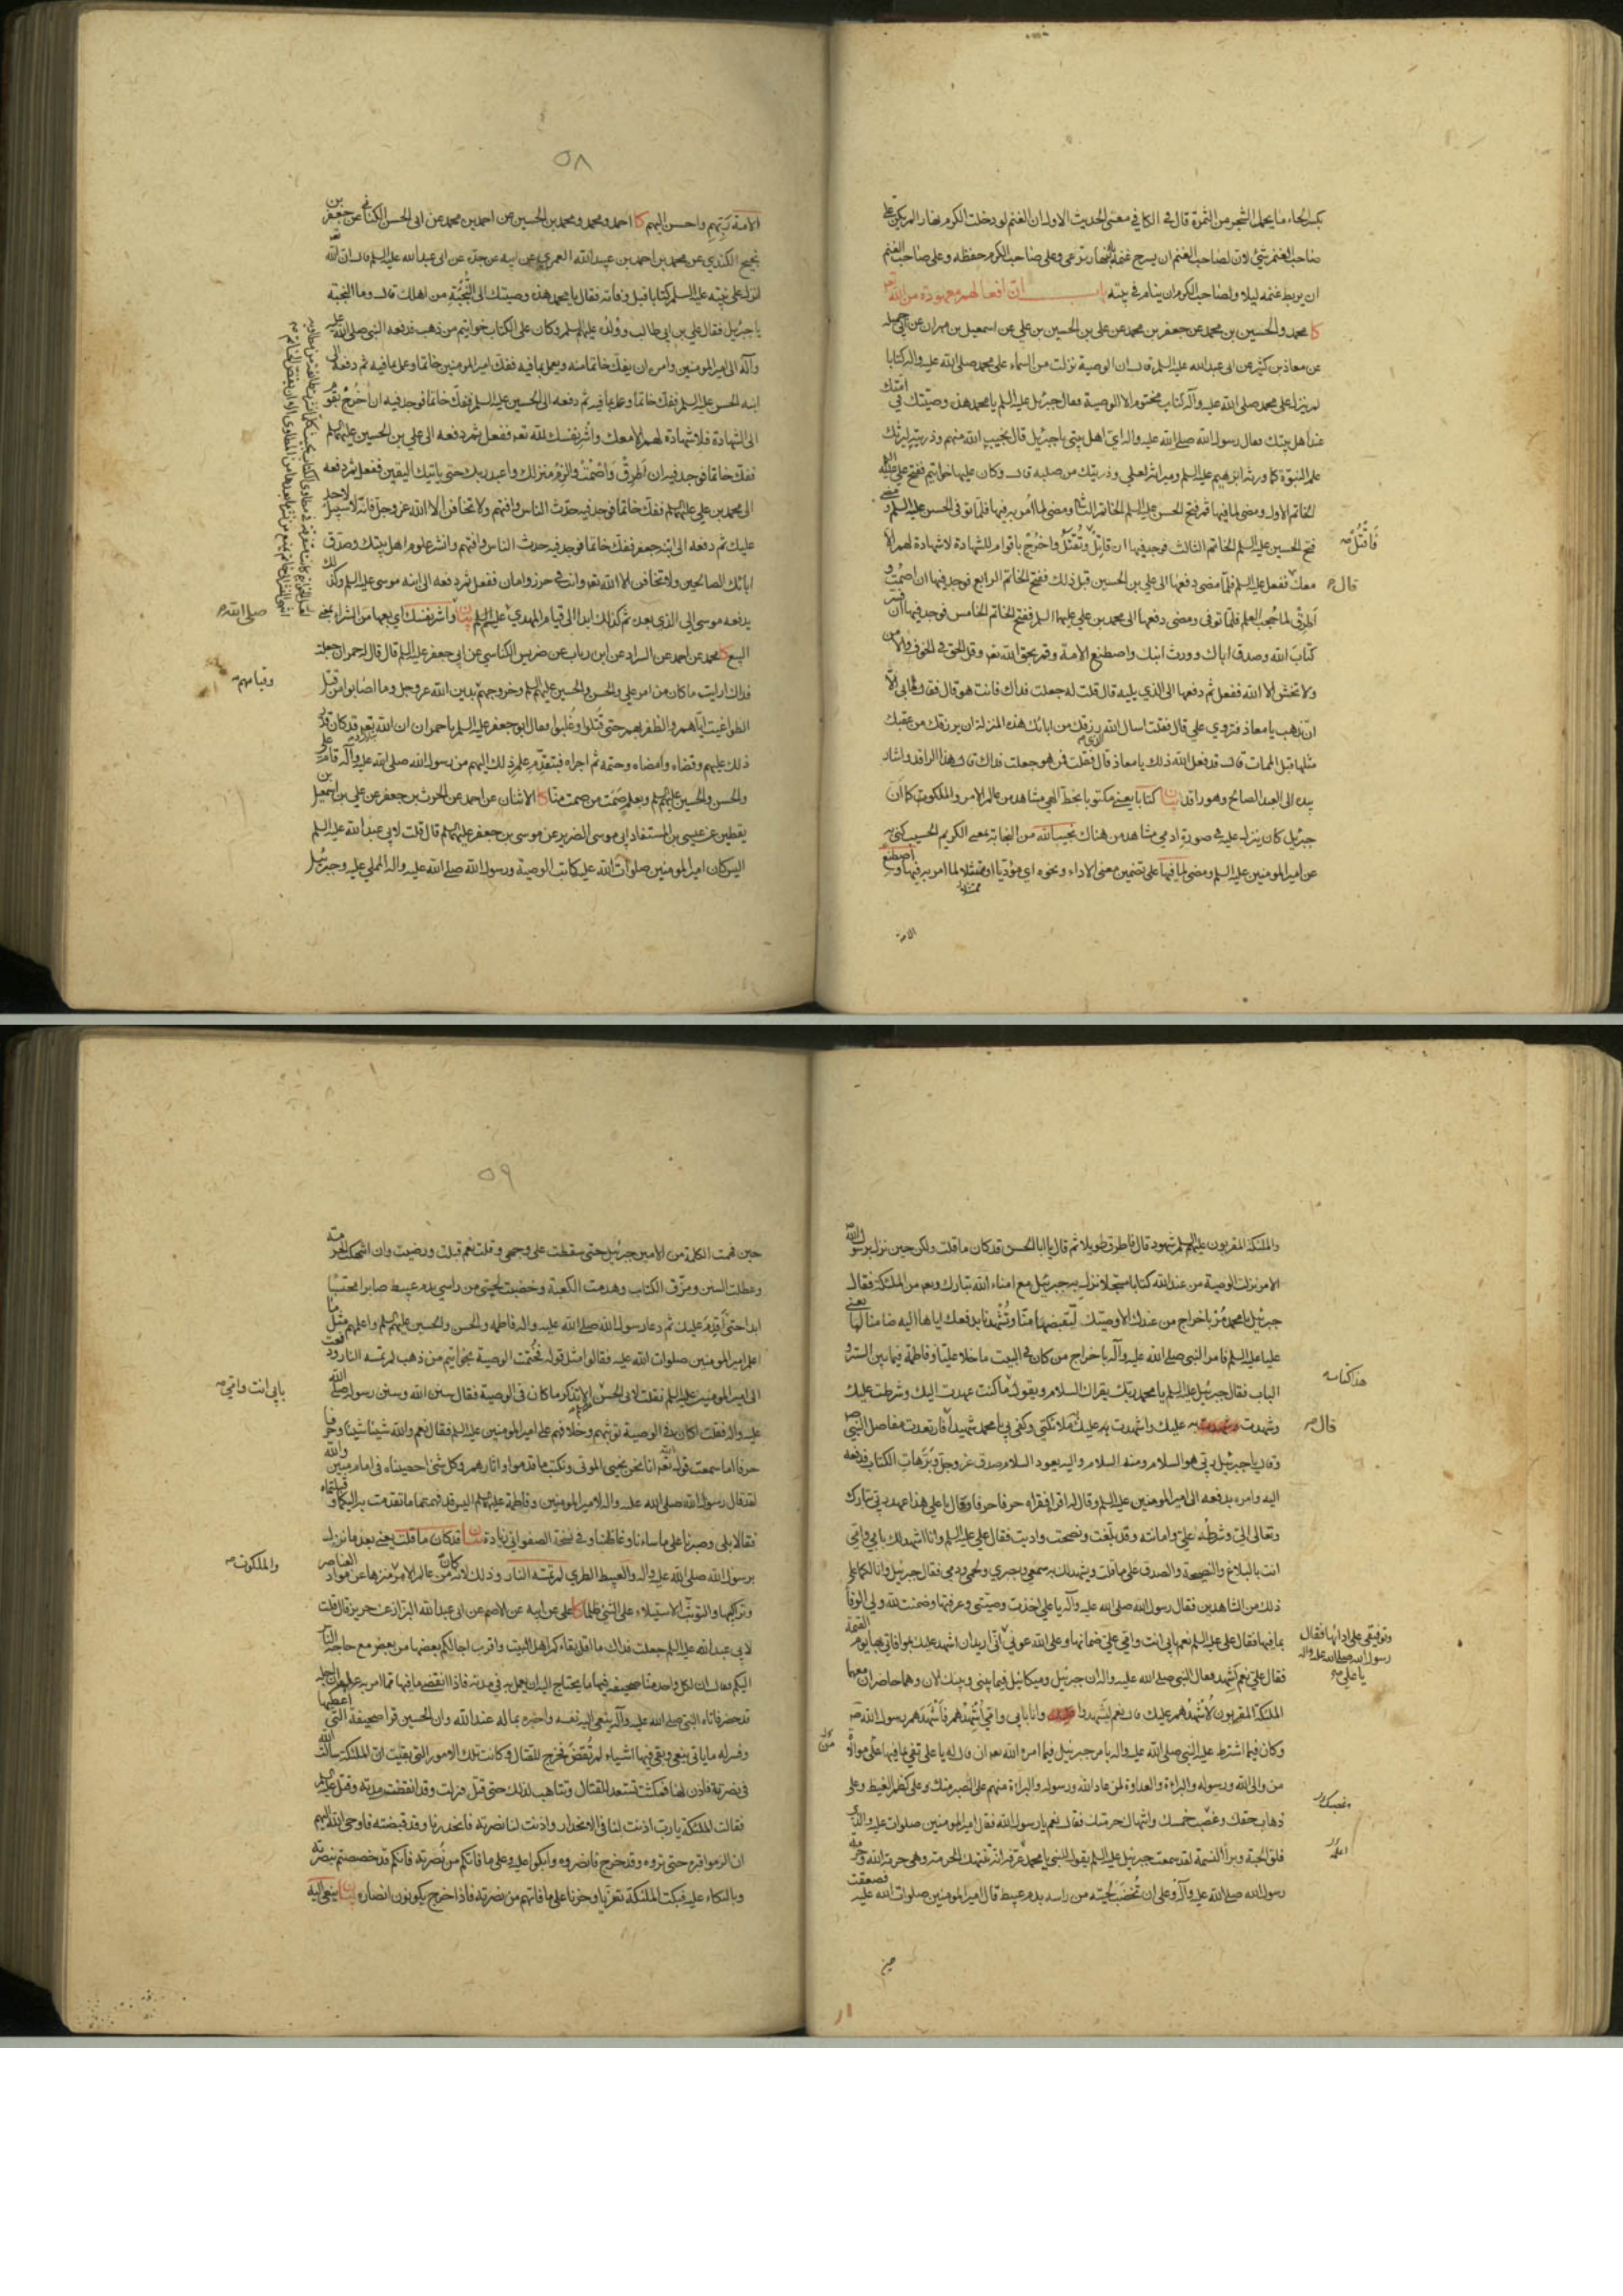 بكسر الحاء ما يحمل الشجر من الثمرة قال في الكافي معنى الحديث الاول ان الغنم لو دخلت الكرم نهارا لم يكن على
صاحب الغنم شيء لان لصاحب الغنم ان يسرح غنمه بالنهار ترعى وعلى صاحب الكرم حفظه وعلى صاحب الغنم
ان يربط غنمه ليلا ولصاحب الكرم ان ينام في بيته باب ان افعالهم معهودة من الله
كا محمد والحسين بن محمد عن جعفر بن محمد عن علي بن الحسين بن علي عن اسمعيل بن مهران عن ابي جميله
عن معاذ بن كثير عن ابي عبدالله عليه السلم قال ان الوصية نزلت من السماء على محمد صلى الله عليه واله كتابا
لم ينزل على محمد صلى الله عليه وآله كتاب مختوم الا الوصية فقال جبرئيل عليه السلم يا محمد هذه وصيتك في امتك
عند اهل بيتك فقال رسول الله صلى الله عليه واله اي اهل بيتي يا جبرئيل قال نجيب الله منهم وذريته ليرثك
علم النبوة كما ورثه ابرهيم عليه السلم وميراثه لعلي وذريتك من صلبه قال وكان عليها خواتيم ففتح علي عليه
الخاتم الاول ومضى لما فيها ثم فتح الحسن عليه السلم الخاتم الثاني ومضى لما امر به فيها فلما توفى الحسن عليه السلم ومضى
فتح الحسين عليه السلم الخاتم الثالث فوجد فيها ان قاتل وتقتل واخرج باقوام للشهادة لا شهادة لهم الا
فاقتل
معك ففعل عليه السلم فلما مضى دفعها الى علي بن الحسين قبل ذلك ففتح الخاتم الرابع فوجد فيها ان اصمت و
قال
اطرق لما حجب العلم فلما توفى ومضى دفعها الى محمد بن علي عليهما السلم ففتح الخاتم الخامس فوجد فيها ان فسر
كتاب الله وصدق اباك وورث ابنك واصطنع الامة وقم بحق الله تعه وقل الحق في الخوف والامن
ولا تخش الا الله ففعل ثم دفعها الى الذي يليه قال قلت له جعلت فداك فانت هو قال فقال ما بي الا
ان تذهب يا معاذ فتروي علي قال فقلت اسال الله الذي رزقك من ابائك هذه المنزلة ان يرزقك من عقبك
مثلها قبل الممات قال قد فعل الله ذلك يا معاذ قال فقلت فمن هو جعلت فداك قال هذا الراقد واشار
بيده الى العبد الصالح وهو راقد بيان كتابا يعني مكتوبا بخط الهي مشاهد من عالم الامر والملكوت كما ان
جبرئيل كان ينزل عليه في صورة ادمي مشاهد من هناك نجيب الله من النجابة بمعنى الكريم الحسيب كنى به
عن امير المومنين عليه السلم ومضى لما فيها على تضمين معنى الاداء ونحوه اي مؤديا او ممتثلا لما امر به فيها واصطنع
الامة
٥٨
الامة ربهم واحسن اليهم كا احمد ومحمد ومحمد بن الحسين عن احمد بن محمد عن ابي الحسن الكناني عن جعفر بن
نجيح الكندي عن محمد بن احمد بن عبيد الله العمري عن ابيه عن جده عن ابي عبدالله عليه السلم قال ان الله
انزل على نبيه عليه السلم كتابا قبل وفاته فقال يا محمد هذه وصيتك الى النجبة من اهلك قال وما النجبة
يا جبرئيل فقال علي بن ابي طالب وولده عليهم السلم وكان على الكتاب خواتيم من ذهب فدفعه النبي صلى الله عليه
وآله الى امير المومنين وامره ان يفك خاتما منه ويعمل بما فيه ففك امير المومنين خاتما وعمل بما فيه ثم دفعه الى
ابنه الحسن عليه السلم ففك خاتما وعمل بما فيه ثم دفعه الى الحسين عليه السلم ففك خاتما فوجد فيه ان اخرج بقوم
الى الشهادة فلا شهادة لهم الا معك واشر نفسك لله تعه ففعل ثم دفعه الى علي بن الحسين عليهما السلم
ففك خاتما فوجد فيه ان اطرق واصمت والزم منزلك واعبد ربك حتى ياتيك اليقين ففعل ثم دفعه
الى محمد بن علي عليهما السلم ففك خاتما فوجد فيه حدث الناس وافتهم ولا تخافن الا الله عز وجل فانه لا سبيل لاحد
عليك ثم دفعه الى ابنه جعفر ففك خاتما فوجد فيه حدث الناس وافتهم وانشر علوم اهل بيتك وصدق
ابائك الصالحين ولا تخافن الا الله تعه وانت في حرز وامان ففعل ثم دفعه الى ابنه موسى عليه السلم وكذلك
يدفعه موسى الى الذي بعده ثم كذلك ابدا الى قيام المهدي عليه السلم بيان واشر نفسك اي بعها من الشراء بمعنى
صلى الله
البيع كا محمد عن احمد عن السراد عن ابن رباب عن ضريس الكناسي عن ابي جعفر عليه السلم قال قال له حمران جعلت
فداك ارايت ما كان من امر علي والحسن والحسين عليهم السلم وخروجهم بدين الله عز وجل وما اصابوا من قتل
وقيامهم
الطواغيت اياهم والظفر بهم حتى قتلوا وغلبوا فقال ابو جعفر عليه السلم يا حمران ان الله تعه قد كان قدر
ذلك عليهم وقضاه وامضاه وحتمه ثم اجراه فبتقدم علم ذلك اليهم من رسول الله صلى الله عليه وآله قام علي
والحسن والحسين عليهم السلم وبعلم صمت من صمت منا كا الاثنان عن احمد عن الحرث بن جعفر عن علي بن اسمعيل بن
يقطين عن عيسى بن المستفاد ابي موسى الضرير عن موسى بن جعفر عليهما السلم قال قلت لابي عبد الله عليه السلم
اليس كان امير المومنين صلوات الله عليه كاتب الوصية ورسول الله صلى الله عليه واله المملي عليه وجبرئيل
والملئكة المقربون عليهم السلم شهود قال فاطرق طويلا ثم قال يا ابا الحسن قد كان ما قلت ولكن حين نزل برسول الله
الامر نزلت الوصية من عند الله كتابا مسجلا نزل به جبرئيل مع امناء الله تبارك وتعه من الملئكة فقال
جبرئيل يا محمد مر باخراج من عندك الا وصيك ليقبضها منا وتشهدنا بدفعك اياها اليه ضامنا لها يعني
عليا عليه السلم فامر النبي صلى الله عليه وآله باخراج من كان في البيت ما خلا عليا وفاطمة فيما بين الستر و
الباب فقال جبرئيل عليه السلم يا محمد ربك يقراك السلام ويقول ما كنت عهدت اليك وشرطت عليك
وشهدت به عليك واشهدت به عليك ملائكتي وكفى بي يا محمد شهيدا فارتعدت مفاصل النبي
قال
وقال يا جبرئيل ربي هو السلام ومنه السلام واليه يعود السلام صدق عز وجل وبر هات الكتاب فدفعه
اليه وامره بدفعه الى امير المومنين عليه السلم وقال له اقراه فقراه حرفا حرفا وقال يا علي هذا عهد ربي تبارك
وتعالى الي وشرطه علي وامانته وقد بلغت ونصحت واديت فقال علي عليه السلم وانا اشهد لك بابي وامي
انت بالبلاغ والنصيحة والصدق على ما قلت ويشهد لك به سمعي وبصري ولحمي ودمي فقال جبرئيل وانا لكما على
ذلك من الشاهدين فقال رسول الله صلى الله عليه وآله يا علي اخذت وصيتي وعرفتها وضمنت لله ولي الوفا
بما فيها فقال علي عليه السلم نعم بابي انت وامي علي ضمانها وعلى الله عوني اني اريد ان اشهد عليك بموافاتي بها يوم القيمة
وتوفيقي على ادائها فقال
رسول الله صلى الله عليه واله
يا علي
فقال علي نعم اشهد فقال النبي صلى الله عليه واله ان جبرئيل وميكائيل فيما بيني وبينك الان وهما حاضران معهما
الملئكة المقربون لاشهدهم عليك قال نعم ليشهدوا وانا بابي وامي اشهدهم فاشهدهم رسول الله
وكان فيما اشترط عليه النبي صلى الله عليه واله بامر جبرئيل فيما امره الله تعه ان قال له يا علي تفي بما فيها على موالاة
من والى الله ورسوله والبراءة والعداوة لمن عاد الله ورسوله والبراءة منهم على الصبر منك وعلى كظم الغيظ وعلى
ذهاب حقك وغصب خمسك وانتهاك حرمتك فقال نعم يا رسول الله فقال امير المومنين صلوات عليه والذي
فلق الحبة وبرأ النسمة لقد سمعت جبرئيل عليه السلم يقول للنبي يا محمد عرفه انه ينتهك الحرمة وهي حرمة الله وحرمة
رسول الله صلى الله عليه وآله وعلى ان تخضب لحيته من راسه بدم عبيط قال امير المومنين صلوات الله عليه فصعقت
حين
٥٩
حين فهمت الكلمة من الامين جبرئيل حتى سقطت على وجهي وقلت نعم قبلت ورضيت وان انتهكت الحرمة
وعطلت السنن ومزق الكتاب وهدمت الكعبة وخضبت لحيتي من راسي بدم عبيط صابرا محتسبا
ابدا حتى اقدم عليك ثم دعا رسول الله صلى الله عليه واله فاطمه والحسن والحسين عليهم السلم واعلمهم مثل ما
اعلم امير المومنين صلوات الله عليه فقالوا مثل قوله فختمت الوصية بخواتيم من ذهب لم تمسه النار ودفعت
الى امير المومنين عليه السلم فقلت لابي الحسن الا تذكر ما كان في الوصية فقال سنن الله وسنن رسوله صلى الله
بابي انت وامي
عليه واله فقلت اكان في الوصية توثبهم وخلافهم على امير المومنين عليه السلم فقال نعم والله شيئا شيئا وحرفا
حرفا اما سمعت قول الله تعه انا نحن نحيي الموتى ونكتب ما قدموا واثارهم وكل شئ احصيناه في امام مبين والله
لقد قال رسول الله صلى الله عليه واله لامير المومنين وفاطمة عليهما السلم اليس قد فهمتما ما تقدمت به اليكما وقبلتماه
فقالا بلى وصبرنا على ما ساءنا وغاظنا وفي نسخة الصفواني زيادة بيان قد كان ما قلت يعني بعد ما نزل
برسول الله صلى الله عليه واله والعبيط الطري لم تمسه النار وذلك لانه كان من عالم الامر منزها عن مواد العناصر
والملكوت
وتراكيبها والتوثب الاستيلاء على الشئ ظلما كا علي عن ابيه عن الاصم عن ابي عبدالله البزاز عن حريز قال قلت
لابي عبدالله عليه السلم جعلت فداك ما اقل بقاءكم اهل البيت واقرب اجالكم بعضها من بعض مع حاجة الناس
اليكم فقال ان لكل واحد منا صحيفة فيها ما يحتاج اليه ان يعمل به في مدته فاذا انقضى ما فيها مما امر به عرف ان اجله
قد حضر فاتاه النبي صلى الله عليه وآله ينعى اليه نفسه واخبره بما له عند الله وان الحسين قرا صحيفة التي اعطيها
وفسر له ما ياتي بنعي وبقي فيها اشياء لم تقض فخرج للقتال وكانت تلك الامور التي بقيت ان الملئكة سالت الله
في نصرته فاذن لها فمكثت تستعد للقتال وتتاهب لذلك حتى قتل فنزلت وقد انقطعت مدته وقتل عليه السلم
فقالت الملئكة يا رب اذنت لنا في الانحدار واذنت لنا نصرته فانحدرنا وقد قبضته فاوحى الله اليهم
ان الزموا قبره حتى تروه وقد خرج فانصروه وابكوا عليه وعلى ما فاتكم من نصرته فانكم قد خصصتم بنصرته
وبالبكاء عليه فبكت الملئكة تعزيا وحزنا على ما فاتهم من نصرته فاذا خرج يكونون انصاره بيان ينعى اليه